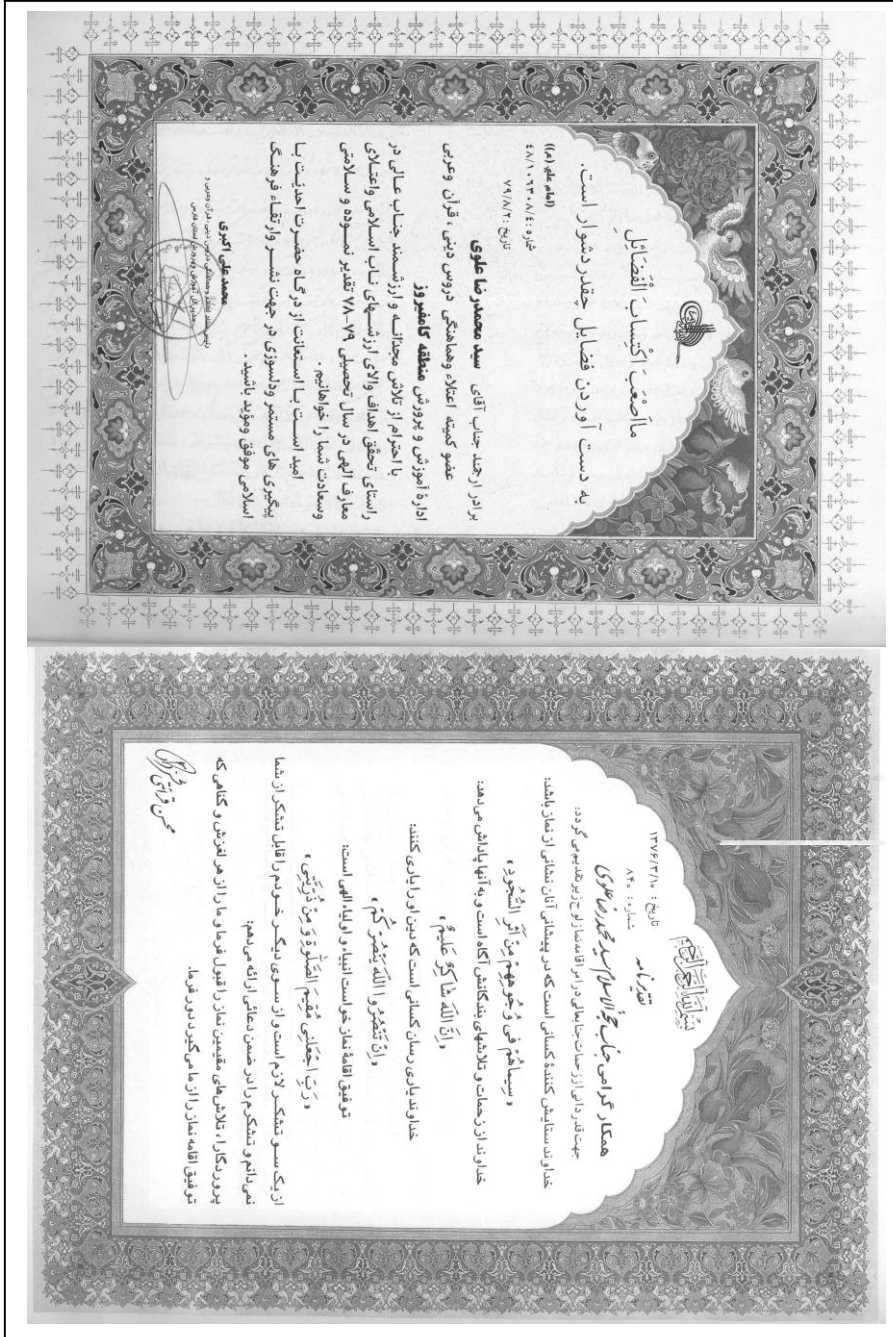 مَا اَصْعَبَ اكْتِسَابَ الْفَضَائِلِ
به دست آوردن فضایل چقدر دشوار است.
(امام علی (ع))
شماره : ۴۸/۱۰۶۳۰۸/۴
تاریخ : ۷۹/۸/۲
برادر ارجمند جناب آقای سید محمدرضا علوی
عضو کمیته اعتلاء وهماهنگی دروس دینی ، قرآن وعربی
ادارهٔ آموزش و پرورش منطقه کامفیروز
با احترام از تلاش مجدانـه و ارزشـمند جناب عـالی در
راستای تحقق اهداف والای ارزشـهای نـاب اسـلامی واعتـلای
معارف الهی در سال تحصیلی ۷۹-۷۸ تقدیر نمـوده و سـلامتی
وسعادت شما را خواهانیم.
امید اسـت بـا اسـتعانت از درگـاه حضـرت احدیـت بـا
پیگیری های مستمر ودلسوزی در جهت نشـر وارتقـاء فرهنـگ
اسلامی موفق ومؤید باشید .
محمد علی اکبری
بسم الله الرحمن الرحیم
تاریخ : ۱۳۷۶/۳/۱۰
شماره : ۸۴۰
تقدیرنامه
همکار گرامی جناب حجةالاسلام سید محمدرضا علوی
جهت قدردانی از زحمات جنابعالی در امر اقامه نماز لوح زیر تقدیم می گردد:
خداوند ستایش کنندهٔ کسانی است که در پیشانی آنان نشانی از نماز باشد:
«سِیماهُم فی وُجوهِهِم مِنْ اَثَرِ السُّجُودِ»
خداوند از زحمات و تلاشهای بندگانش آگاه است و به آنها پاداش می دهد:
«اِنَّ اللّهَ شاکِرٌ عَلیمٌ»
خداوند یاری رسان کسانی است که دین او را یاری کنند:
«اِنْ تَنْصُرُوا اللّهَ یَنْصُرْکُم»
توفیق اقامهٔ نماز خواست انبیاء و اولیاء الهی است:
«رَبِّ اجعَلنی مُقیمَ الصَّلوةِ وَ مِنْ ذُرِّیَّتی»
از یک سـو تشکـر لازم است و از سـوی دیگـر خـودم را قابل تشکر از شما
نمی دانم و تشکرم را در ضمن دعائی ارائه می دهم:
پروردگارا، تلاش های مقیمین نماز را قبول فرما و ما را از هر لغزش و گناهی که
توفیق اقامه نماز را از ما می گیرد دور فرما.
محسن قرائتی